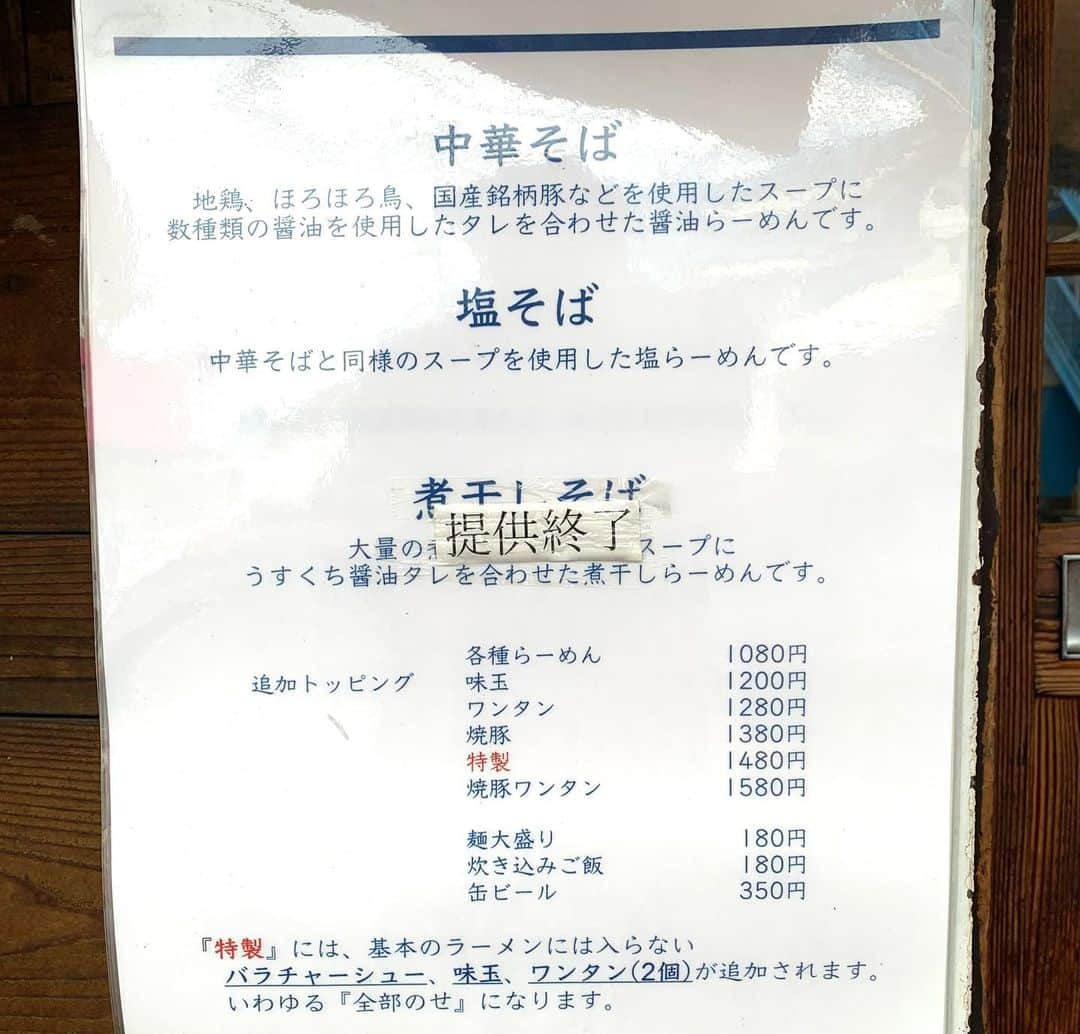 中華そば
地鶏、ほろほろ鳥、国産銘柄豚などを使用したスープに
数種類の醤油を使用したタレを合わせた醤油らーめんです。
塩そば
中華そばと同様のスープを使用した塩らーめんです。
煮干しそば
提供終了
大量の スープに
うすくち醤油タレを合わせた煮干しらーめんです。
各種らーめん 1080円
追加トッピング 味玉 1200円
ワンタン 1280円
焼豚 1380円
特製 1480円
焼豚ワンタン 1580円
麺大盛り 180円
炊き込みご飯 180円
缶ビール 350円
『特製』には、基本のラーメンには入らない
バラチャーシュー、味玉、ワンタン(2個)が追加されます。
いわゆる『全部のせ』になります。